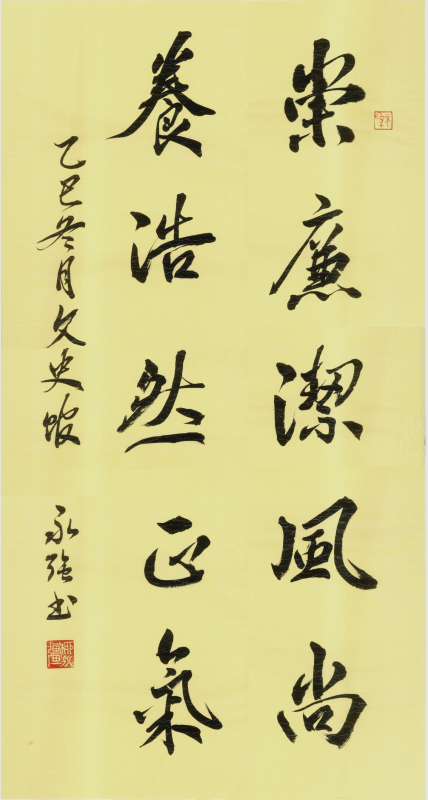 崇廉潔風尚
養浩然正氣
乙巳冬月文史館 永強書